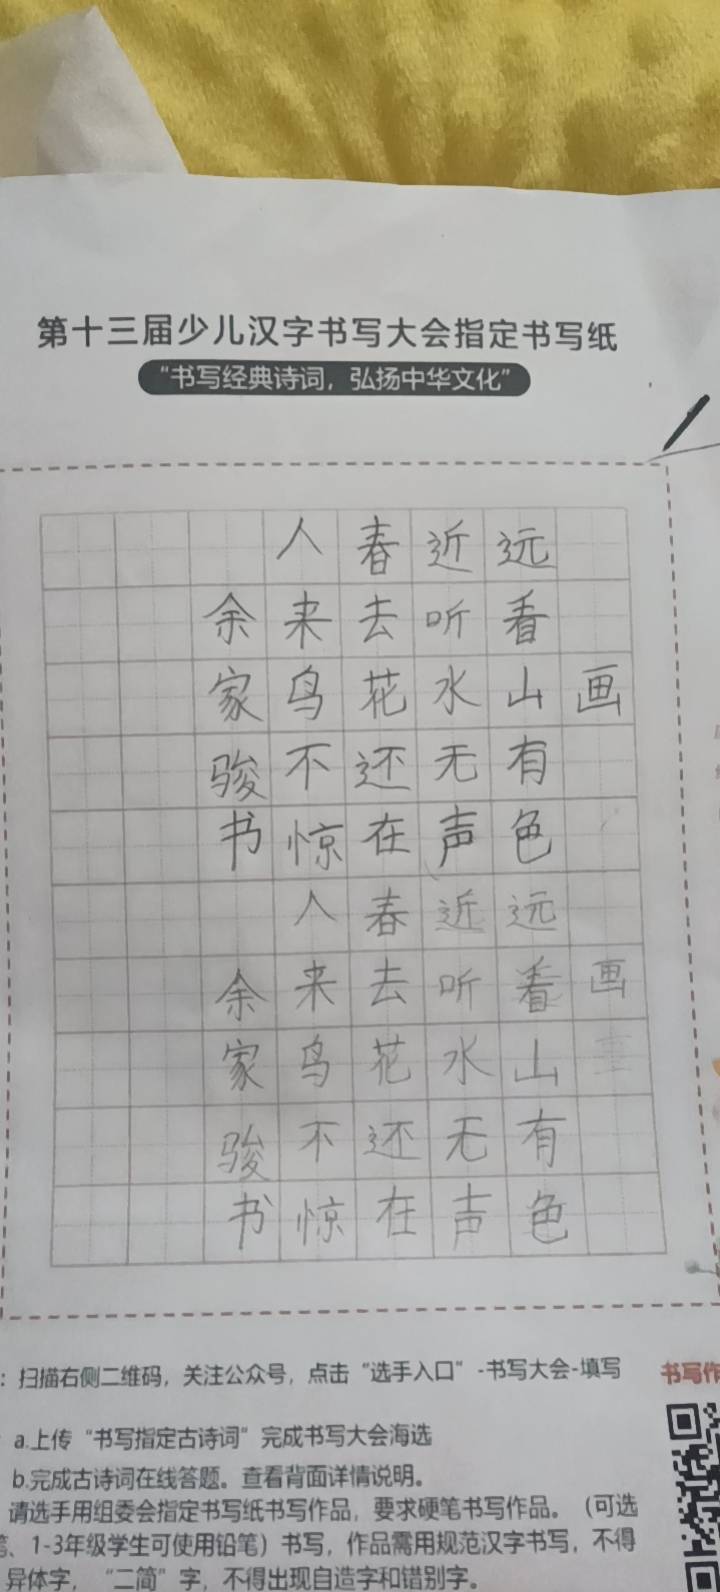 第十三届少儿汉字书写大会指定书写纸
“书写经典诗词，弘扬中华文化”
画
远看山有色
近听水无声
春去花还在
人来鸟不惊
余家骏书
画
远看山有色
近听水无声
春去花还在
人来鸟不惊
余家骏书
：扫描右侧二维码，关注公众号，点击“选手入口”-书写大会-填写
书写作
a.上传“书写指定古诗词”完成书写大会海选
b.完成古诗词在线答题。查看背面详情说明。
请选手用组委会指定书写纸书写作品，要求硬笔书写作品。（可选
、1-3年级学生可使用铅笔）书写，作品需用规范汉字书写，不得
异体字，“二简”字，不得出现自造字和错别字。